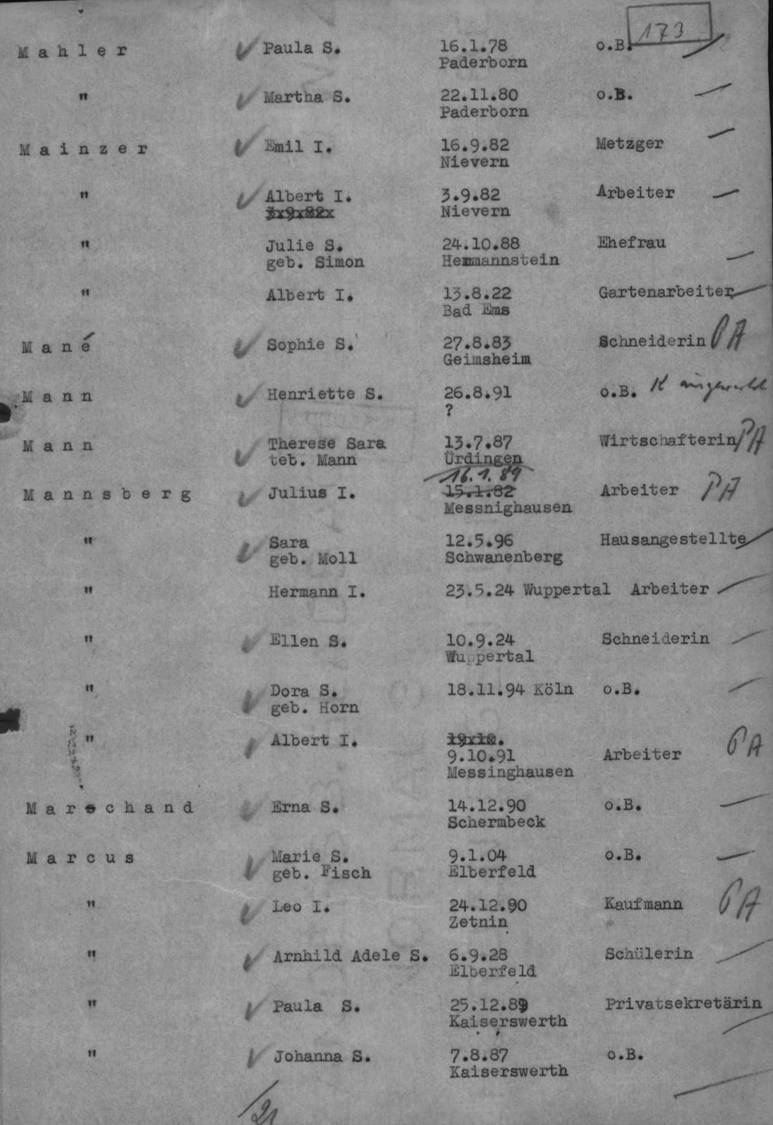 173
M a h l e r Paula S. 16.1.78 o.B.
Paderborn
" Martha S. 22.11.80 o.B.
Paderborn
M a i n z e r Emil I. 16.9.82 Metzger
Nievern
" Albert I. 3.9.82 Arbeiter
3x9x82x Nievern
" Julie S. 24.10.88 Ehefrau
geb. Simon Hermannstein
" Albert I. 13.8.22 Gartenarbeiter
Bad Ems
M a n é Sophie S. 27.8.83 Schneiderin PA
Geimsheim
M a n n Henriette S. 26.8.91 o.B. K
?
M a n n Therese Sara 13.7.87 Wirtschafterin PA
teb. Mann Ürdingen
16.1.89
M a n n s b e r g Julius I. 15.1.82 Arbeiter PA
Messnighausen
" Sara 12.5.96 Hausangestellte
geb. Moll Schwanenberg
" Hermann I. 23.5.24 Wuppertal Arbeiter
" Ellen S. 10.9.24 Schneiderin
Wuppertal
" Dora S. 18.11.94 Köln o.B.
geb. Horn
" Albert I. 19x10.
9.10.91 Arbeiter PA
Messinghausen
M a r s c h a n d Erna S. 14.12.90 o.B.
Schermbeck
M a r c u s Marie S. 9.1.04 o.B.
geb. Fisch Elberfeld
" Leo I. 24.12.90 Kaufmann PA
Zetnin
" Arnhild Adele S. 6.9.28 Schülerin
Elberfeld
" Paula S. 25.12.89 Privatsekretärin
Kaiserswerth
" Johanna S. 7.8.87 o.B.
Kaiserswerth
/21